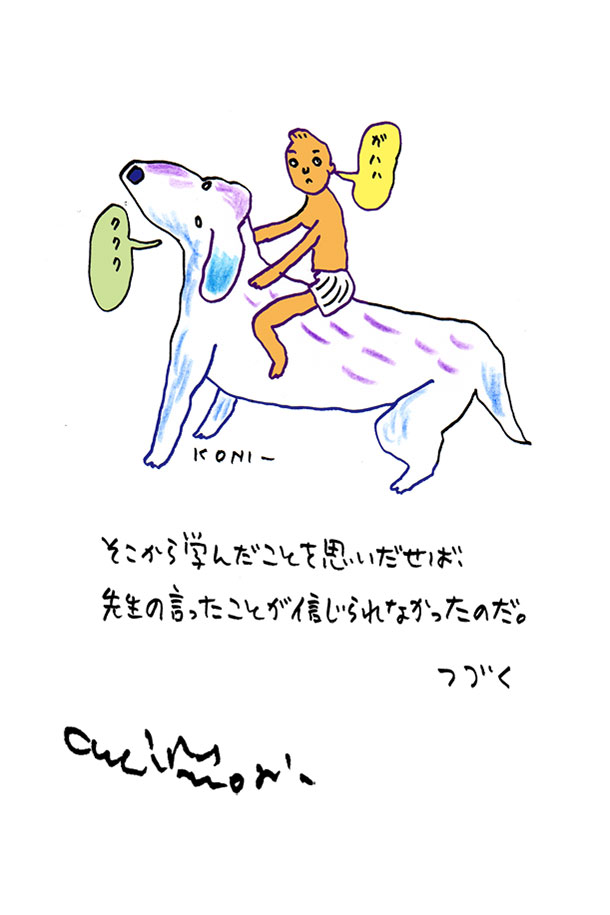 ガハハ
ククク
KONI-
そこから学んだことを思いだせば、
先生の言ったことが信じられなかったのだ。
つづく